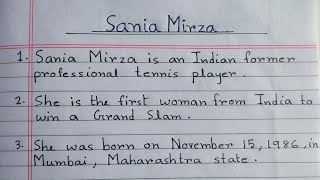 Sania Mirza
1. Sania Mirza is an Indian former
professional tennis player.
2. She is the first woman from India to
win a Grand Slam.
3. She was born on November 15, 1986, in
Mumbai, Maharashtra state.